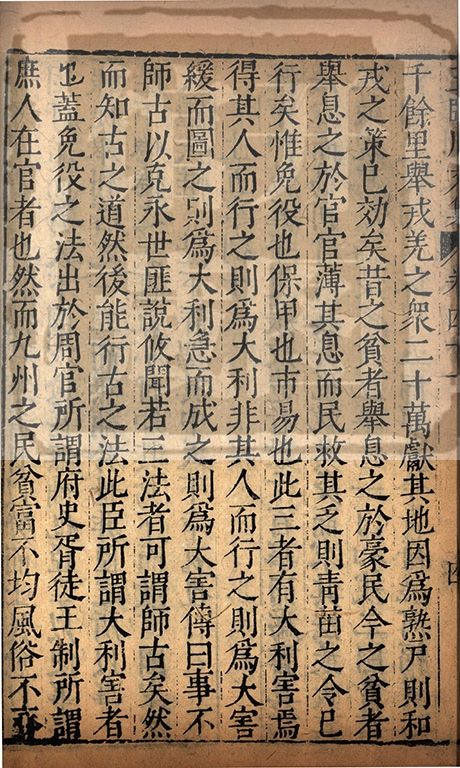 千餘里舉戎羌之衆二十萬獻其地因爲熟戸則和
戎之策已効矣昔之貧者舉息之於豪民今之貧者
舉息之於官官薄其息而民救其乏則青苗之令已
行矣惟免役也保甲也市易也此三者有大利害焉
得其人而行之則爲大利非其人而行之則爲大害
緩而圖之則爲大利急而成之則爲大害傳曰事不
師古以克永世匪說攸聞若三法者可謂師古矣然
而知古之道然後能行古之法此臣所謂大利害者
也蓋免役之法出於周官所謂府史胥徒王制所謂
庶人在官者也然而九州之民貧富不均風俗不齊